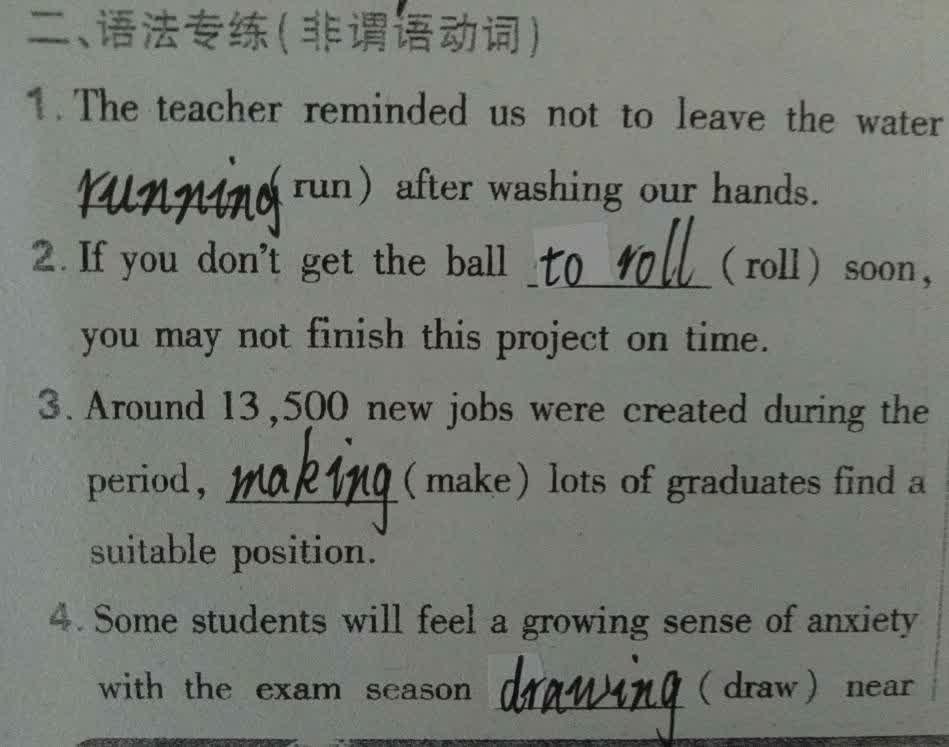 二、语法专练(非谓语动词)
1. The teacher reminded us not to leave the water
running (run) after washing our hands.
2. If you don't get the ball to roll (roll) soon,
you may not finish this project on time.
3. Around 13,500 new jobs were created during the
period, making (make) lots of graduates find a
suitable position.
4. Some students will feel a growing sense of anxiety
with the exam season drawing (draw) near